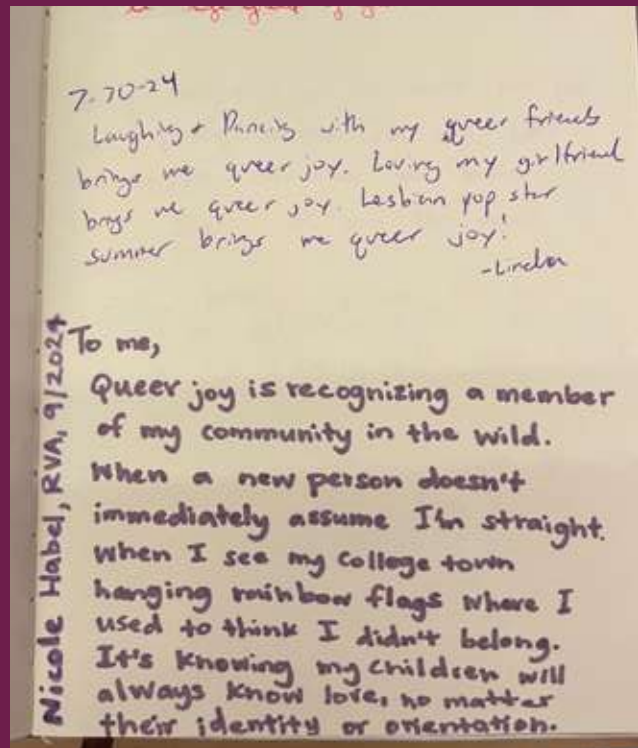 7-30-24
Laughing + Dancing with my queer friends
brings me queer joy. Loving my girlfriend
brings me queer joy. Lesbian pop star
summer brings me queer joy!
To me,
Queer joy is recognizing a member
of my community in the wild.
When a new person doesn't
immediately assume I'm straight.
When I see my college town
hanging rainbow flags where I
used to think I didn't belong.
It's knowing my children will
always know love, no matter
their identity or orientation.
Nicole Habel, RVA, 9/2024